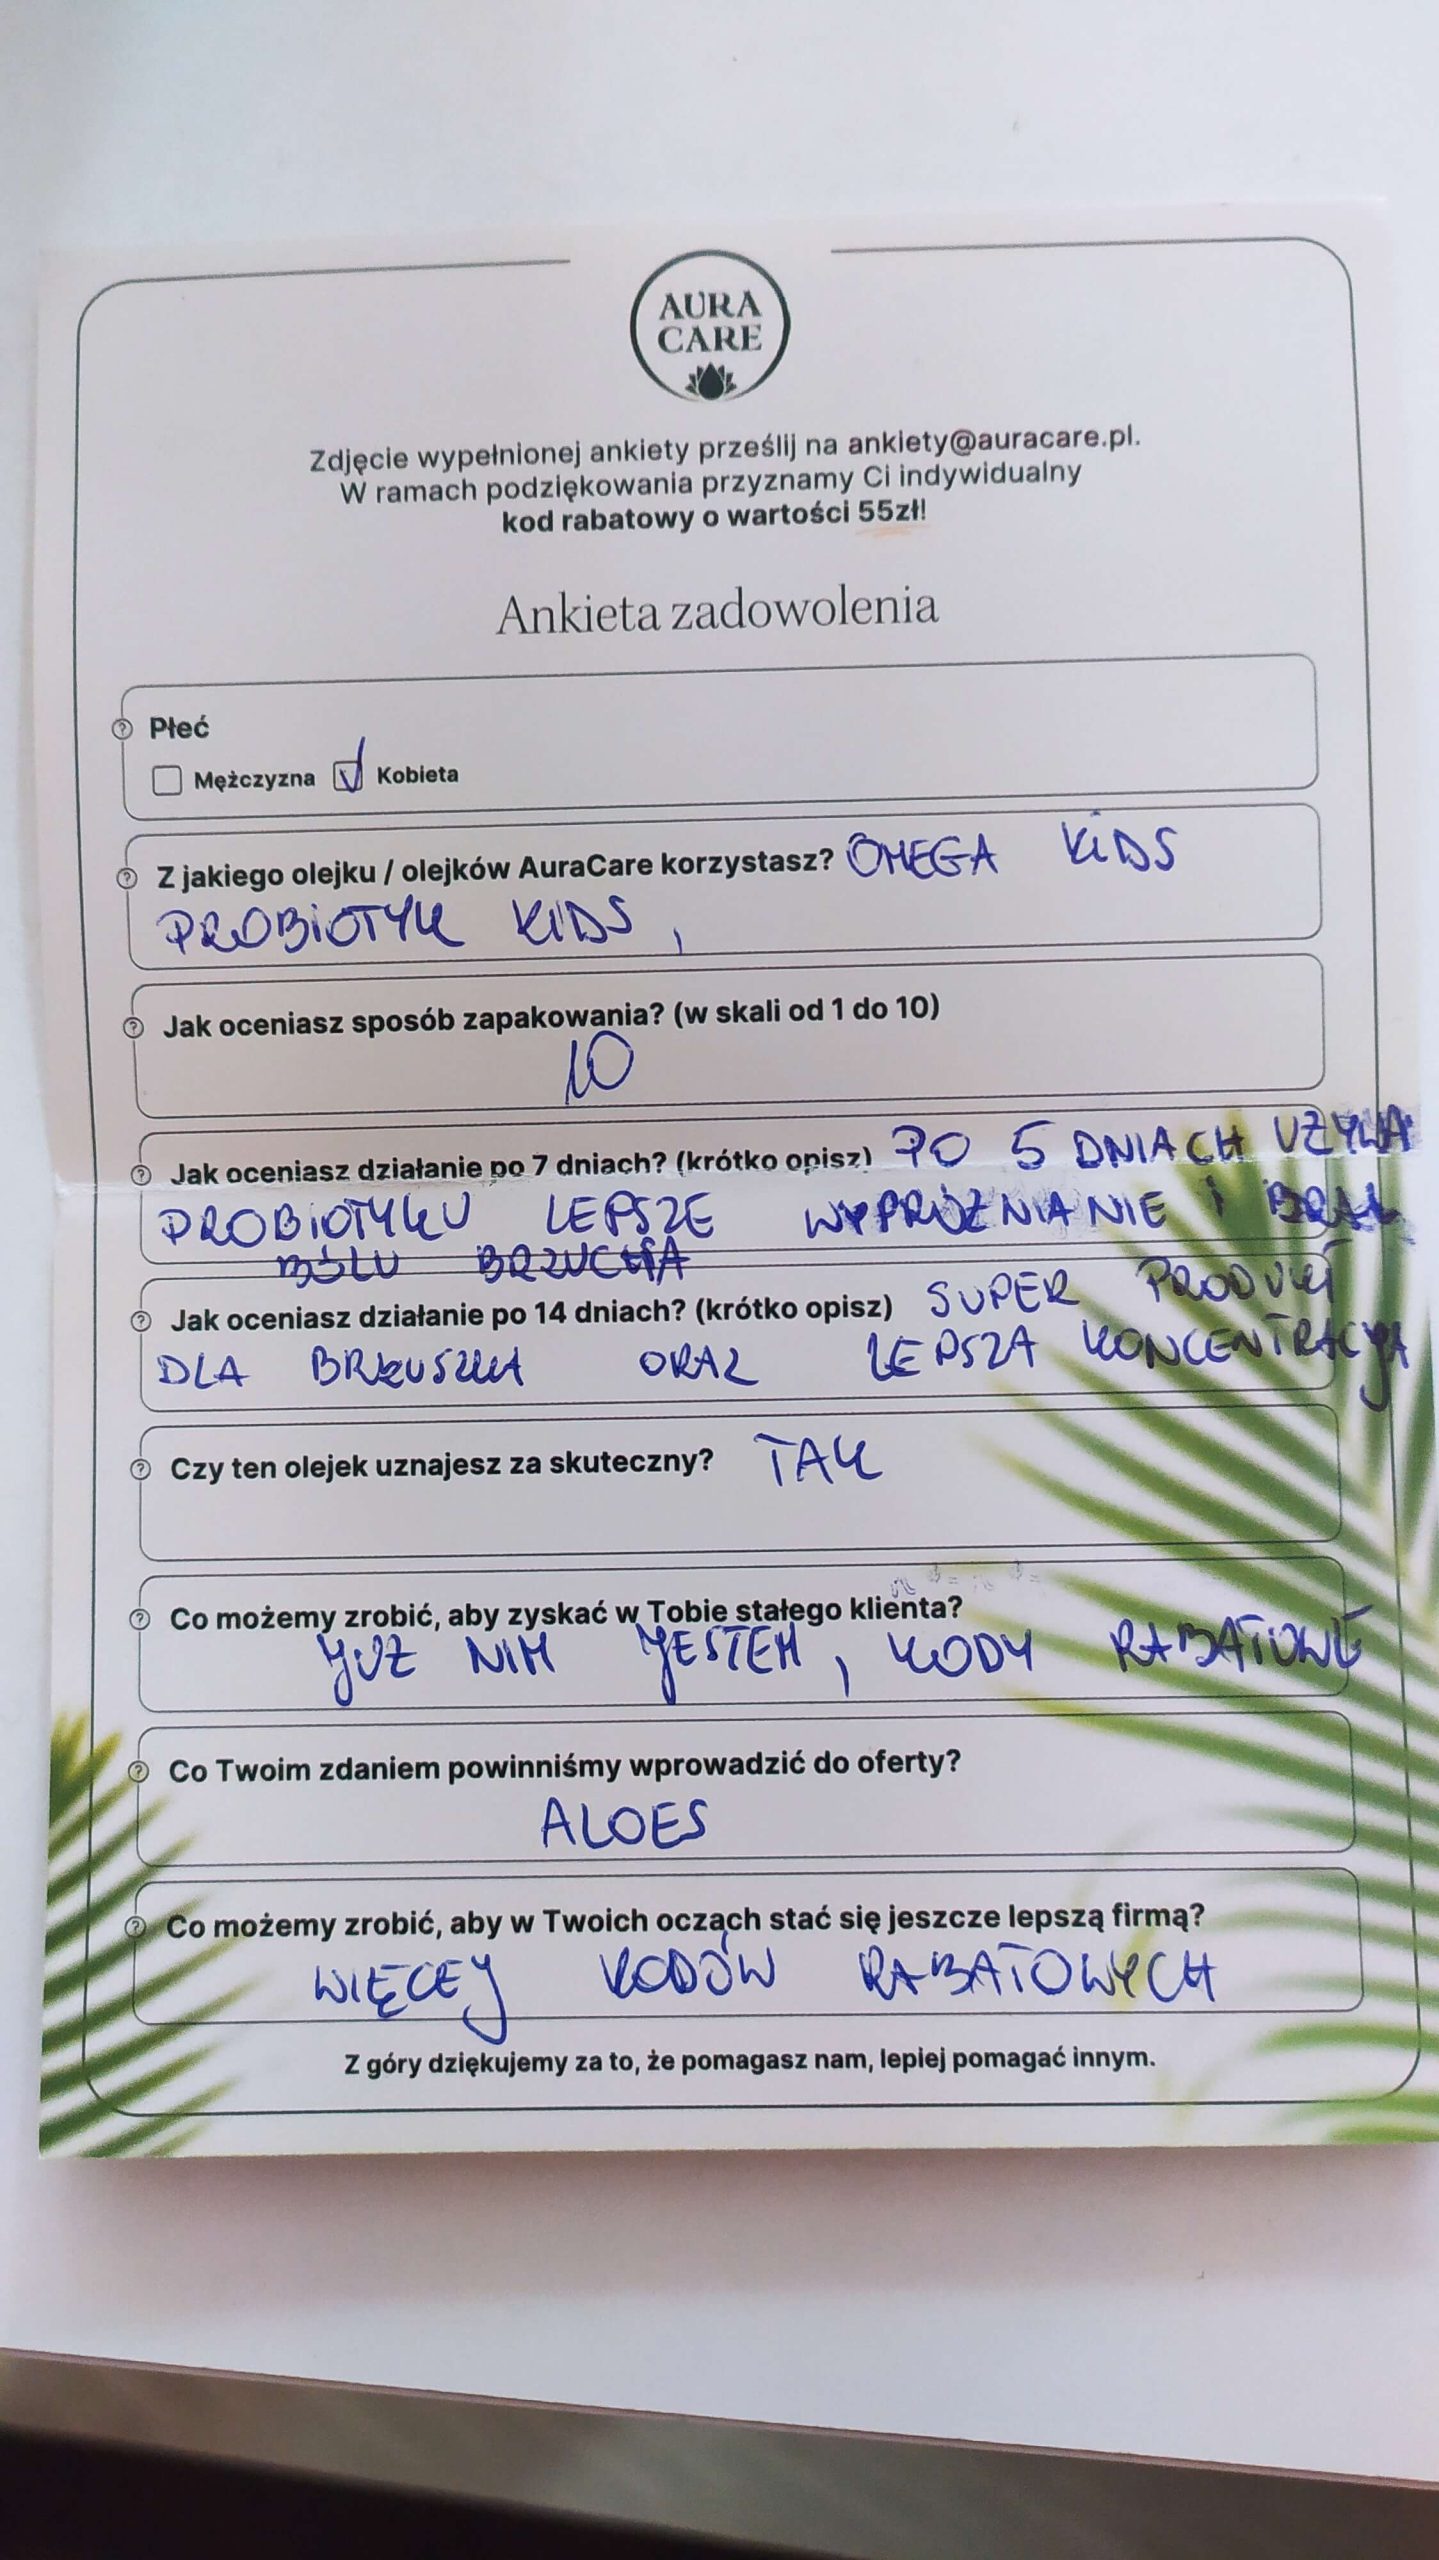 AURA
CARE
Zdjęcie wypełnionej ankiety prześlij na ankiety@auracare.pl.
W ramach podziękowania przyznamy Ci indywidualny
kod rabatowy o wartości 55zł!
Ankieta zadowolenia
Płeć
Mężczyzna Kobieta
Z jakiego olejku / olejków AuraCare korzystasz? OMEGA KIDS
PROBIOTYK KIDS,
Jak oceniasz sposób zapakowania? (w skali od 1 do 10)
10
Jak oceniasz działanie po 7 dniach? (krótko opisz) PO 5 DNIACH UŻYWA
PROBIOTYKU LEPSZE WYPRÓŻNIANIE I BRAK
BÓLU BRZUCHA
Jak oceniasz działanie po 14 dniach? (krótko opisz) SUPER PRODUKT
DLA BRZUSZKA ORAZ LEPSZA KONCENTRACJA
Czy ten olejek uznajesz za skuteczny? TAK
Co możemy zrobić, aby zyskać w Tobie stałego klienta?
JUŻ NIM JESTEM, KODY RABATOWE
Co Twoim zdaniem powinniśmy wprowadzić do oferty?
ALOES
Co możemy zrobić, aby w Twoich oczach stać się jeszcze lepszą firmą?
WIĘCEJ KODÓW RABATOWYCH
Z góry dziękujemy za to, że pomagasz nam, lepiej pomagać innym.